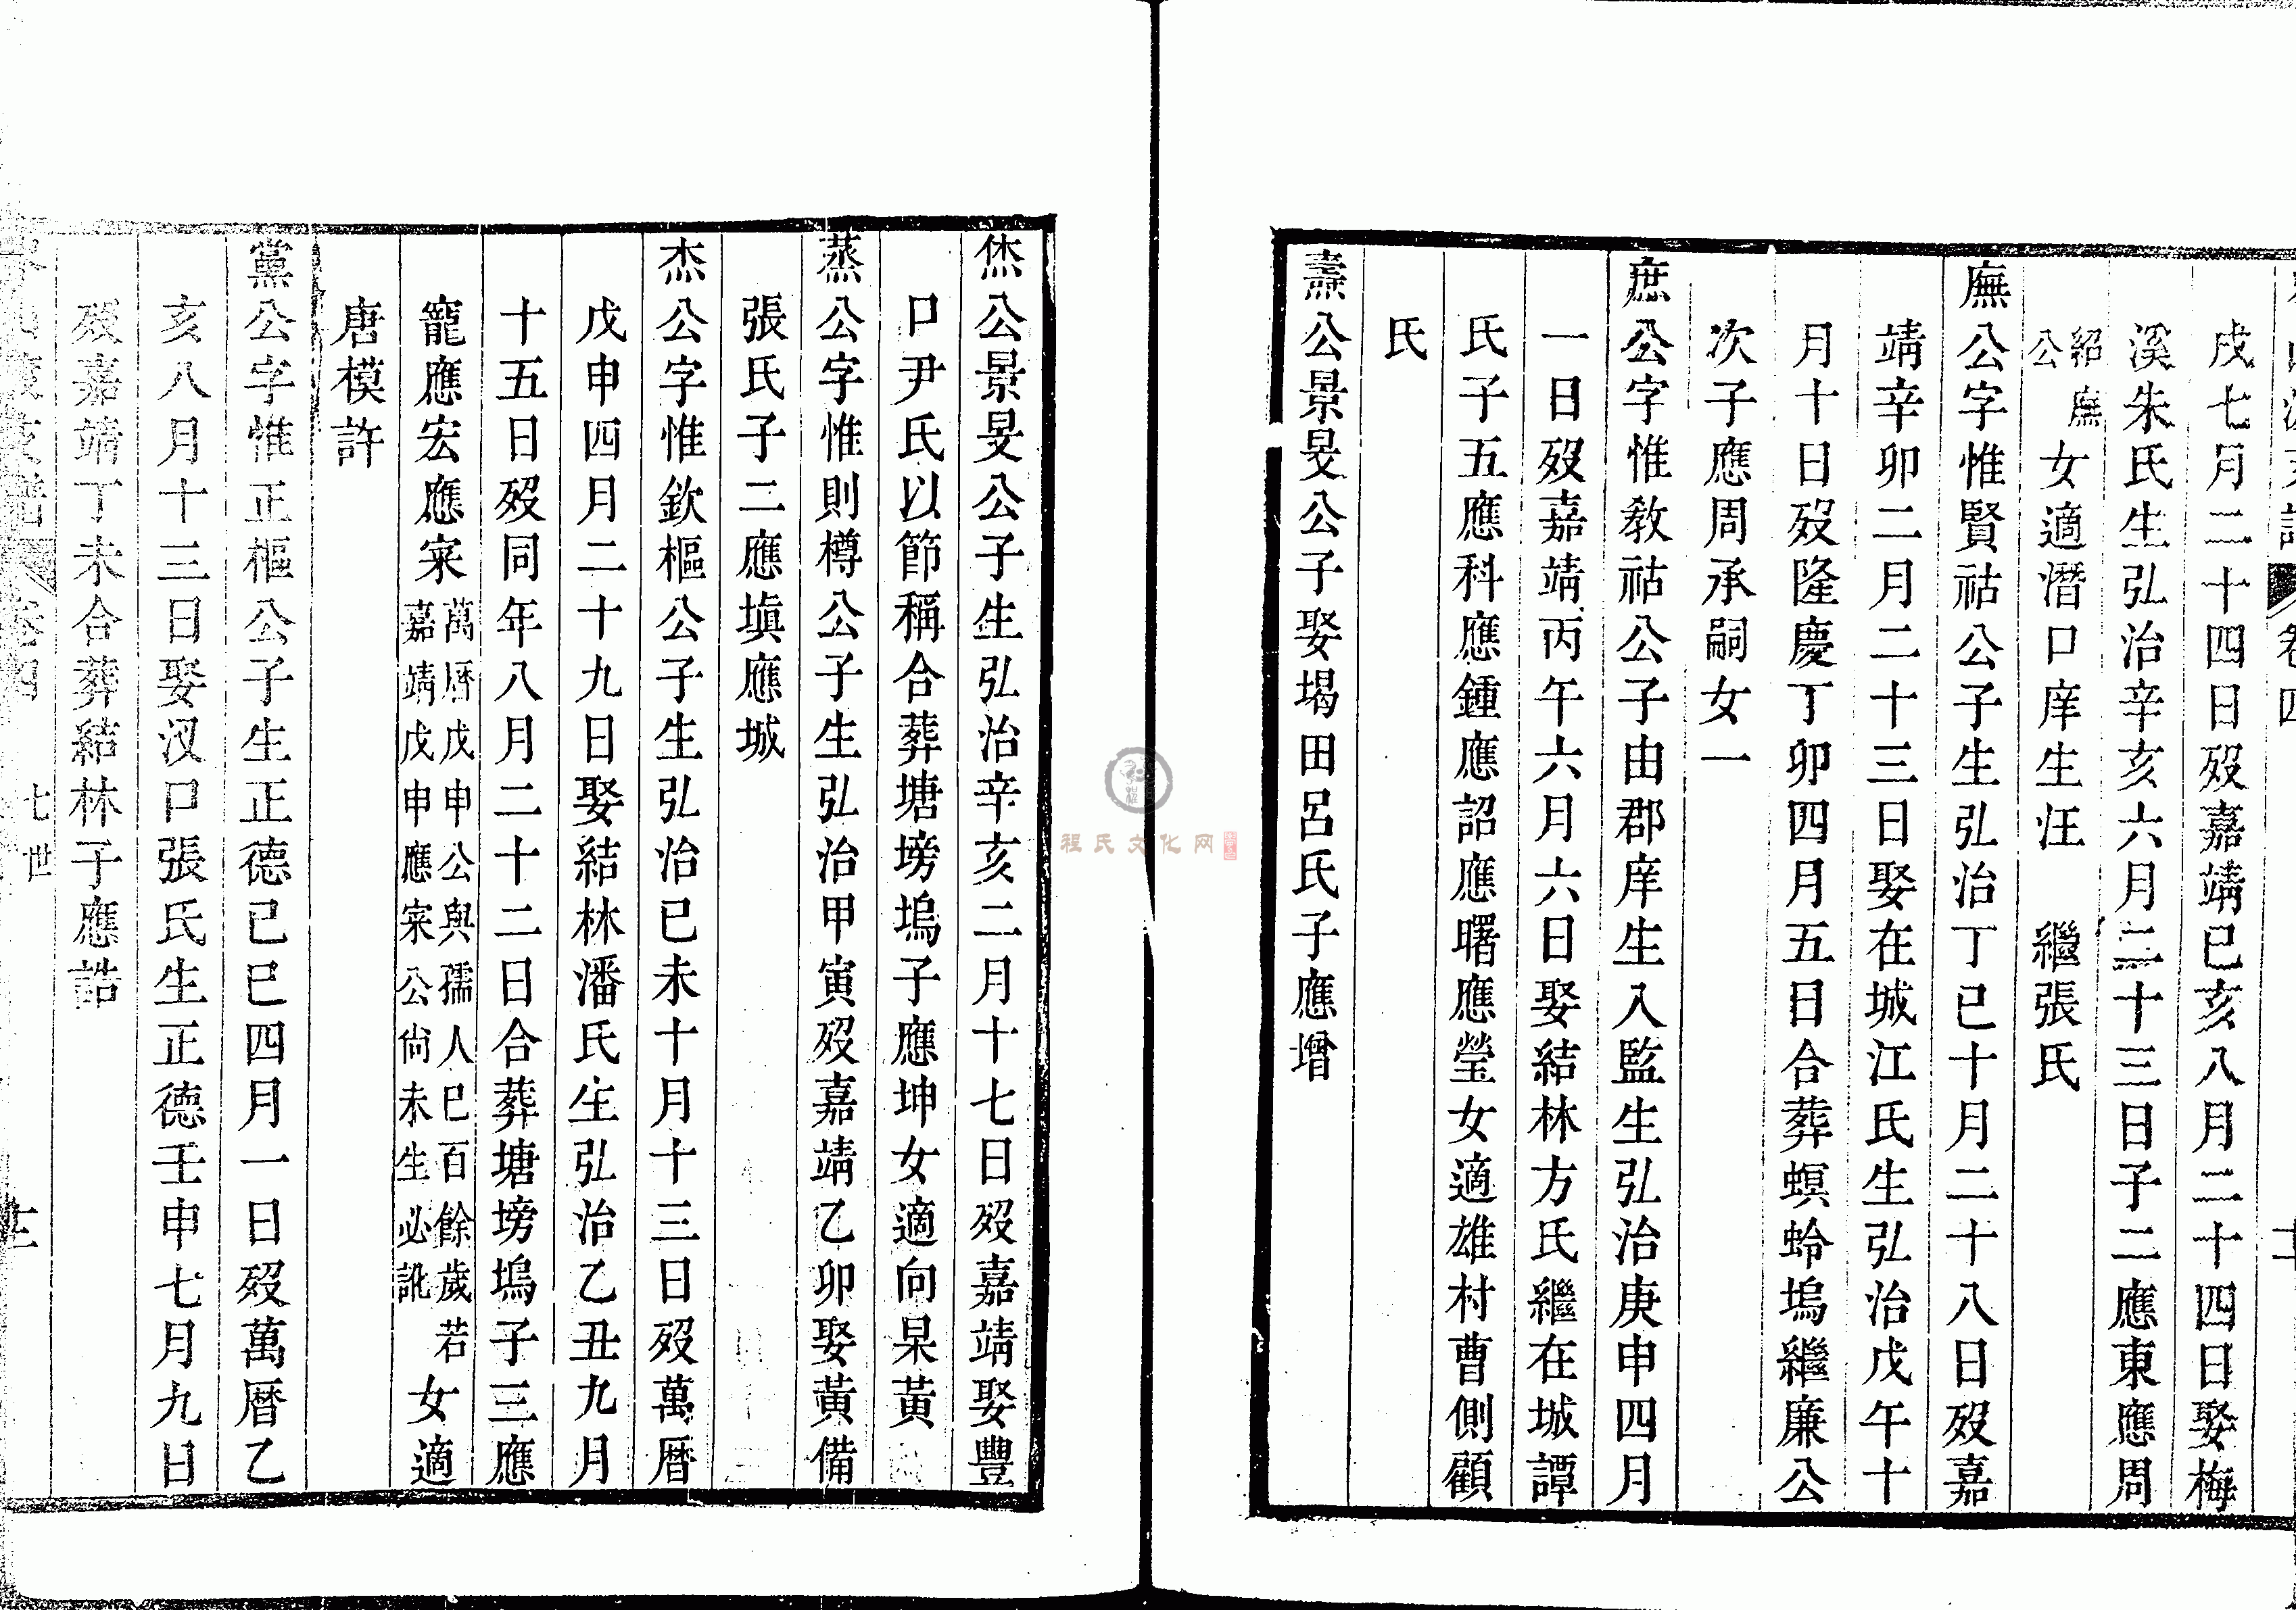 戌七月二十四日歿嘉靖已亥八月二十四日娶梅
溪朱氏生弘治辛亥六月二十三日子二應東應周
紹廡公女適潛口庠生汪　繼張氏
廡公字惟賢祜公子生弘治丁巳十月二十八日歿嘉
靖辛卯二月二十三日娶在城江氏生弘治戊午十
月十日歿隆慶丁卯四月五日合葬螟蛉塢繼廉公
次子應周承嗣女一
庶公字惟教祜公子由郡庠生入監生弘治庚申四月
一日歿嘉靖丙午六月六日娶結林方氏繼在城譚
氏子五應科應鍾應詔應曙應瑩女適雄村曹側顧
氏
燾公景旻公子娶堨田呂氏子應增
烋公景旻公子生弘治辛亥二月十七日歿嘉靖娶豐
口尹氏以節稱合葬塘塝塢子應坤女適向杲黃
蒸公字惟則樽公子生弘治甲寅歿嘉靖乙卯娶黃備
張氏子二應塡應城
杰公字惟欽樞公子生弘治已未十月十三日歿萬曆
戊申四月二十九日娶結林潘氏生弘治乙丑九月
十五日歿同年八月二十二日合葬塘塝塢子三應
寵應宏應寀萬曆戊申公與孺人巳百餘歲若嘉靖戊申應寀公尙未生必訛女適
唐模許
黨公字惟正樞公子生正德己巳四月一日歿萬曆乙
亥八月十三日娶汊口張氏生正德壬申七月九日
歿嘉靖丁未合葬結林子應誥
七世